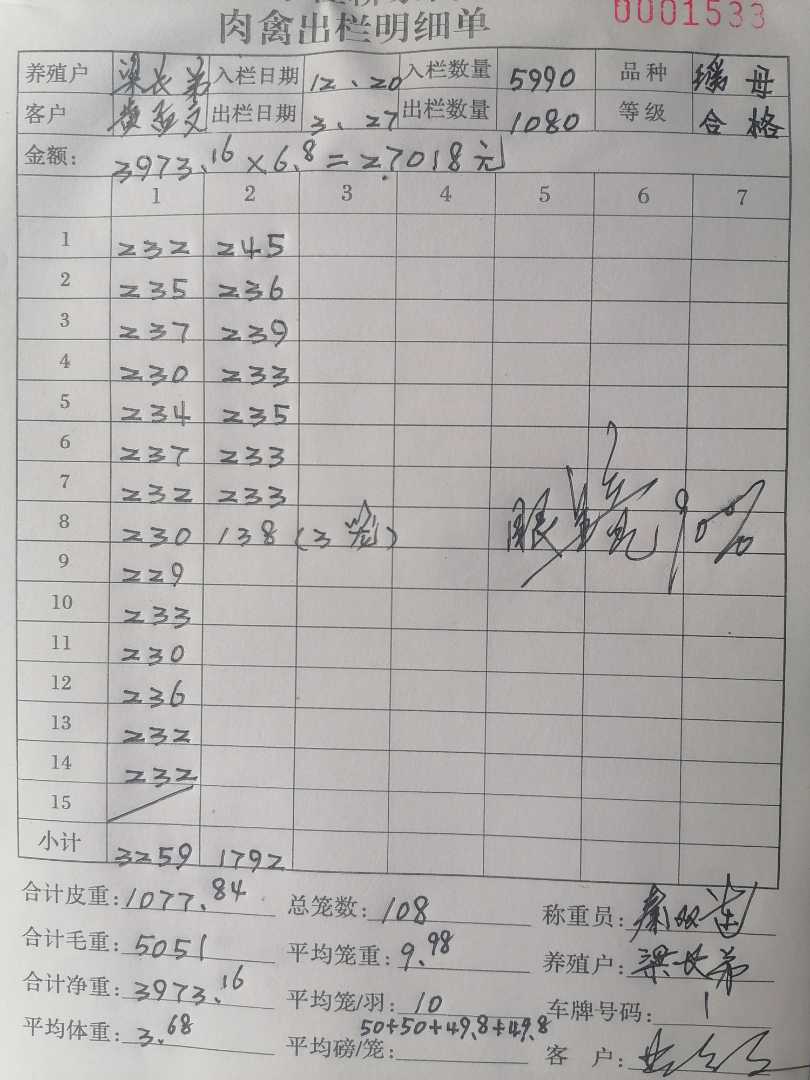 肉禽出栏明细单
0001533
养殖户 梁长弟 入栏日期 12、20 入栏数量 5990 品种 母
客户 黄 文 出栏日期 3、27 出栏数量 1080 等级 合格
金额: 3973.16×6.8=27018元
1 2 3 4 5 6 7
1 232 245
2 235 236
3 237 239
4 230 233
5 234 235
6 237 233
7 232 233
8 230 138 (3笼)
9 229
10 233
11 230
12 236
13 232
14 232
15
小计 3259 1792
合计皮重: 1077.84 总笼数: 108 称重员: 秦双
合计毛重: 5051 平均笼重: 9.98 养殖户: 梁长弟
合计净重: 3973.16 平均笼/羽: 10 车牌号码: 1
平均体重: 3.68 平均磅/笼: 50+50+49.8+49.8 客 户:
眼 90%